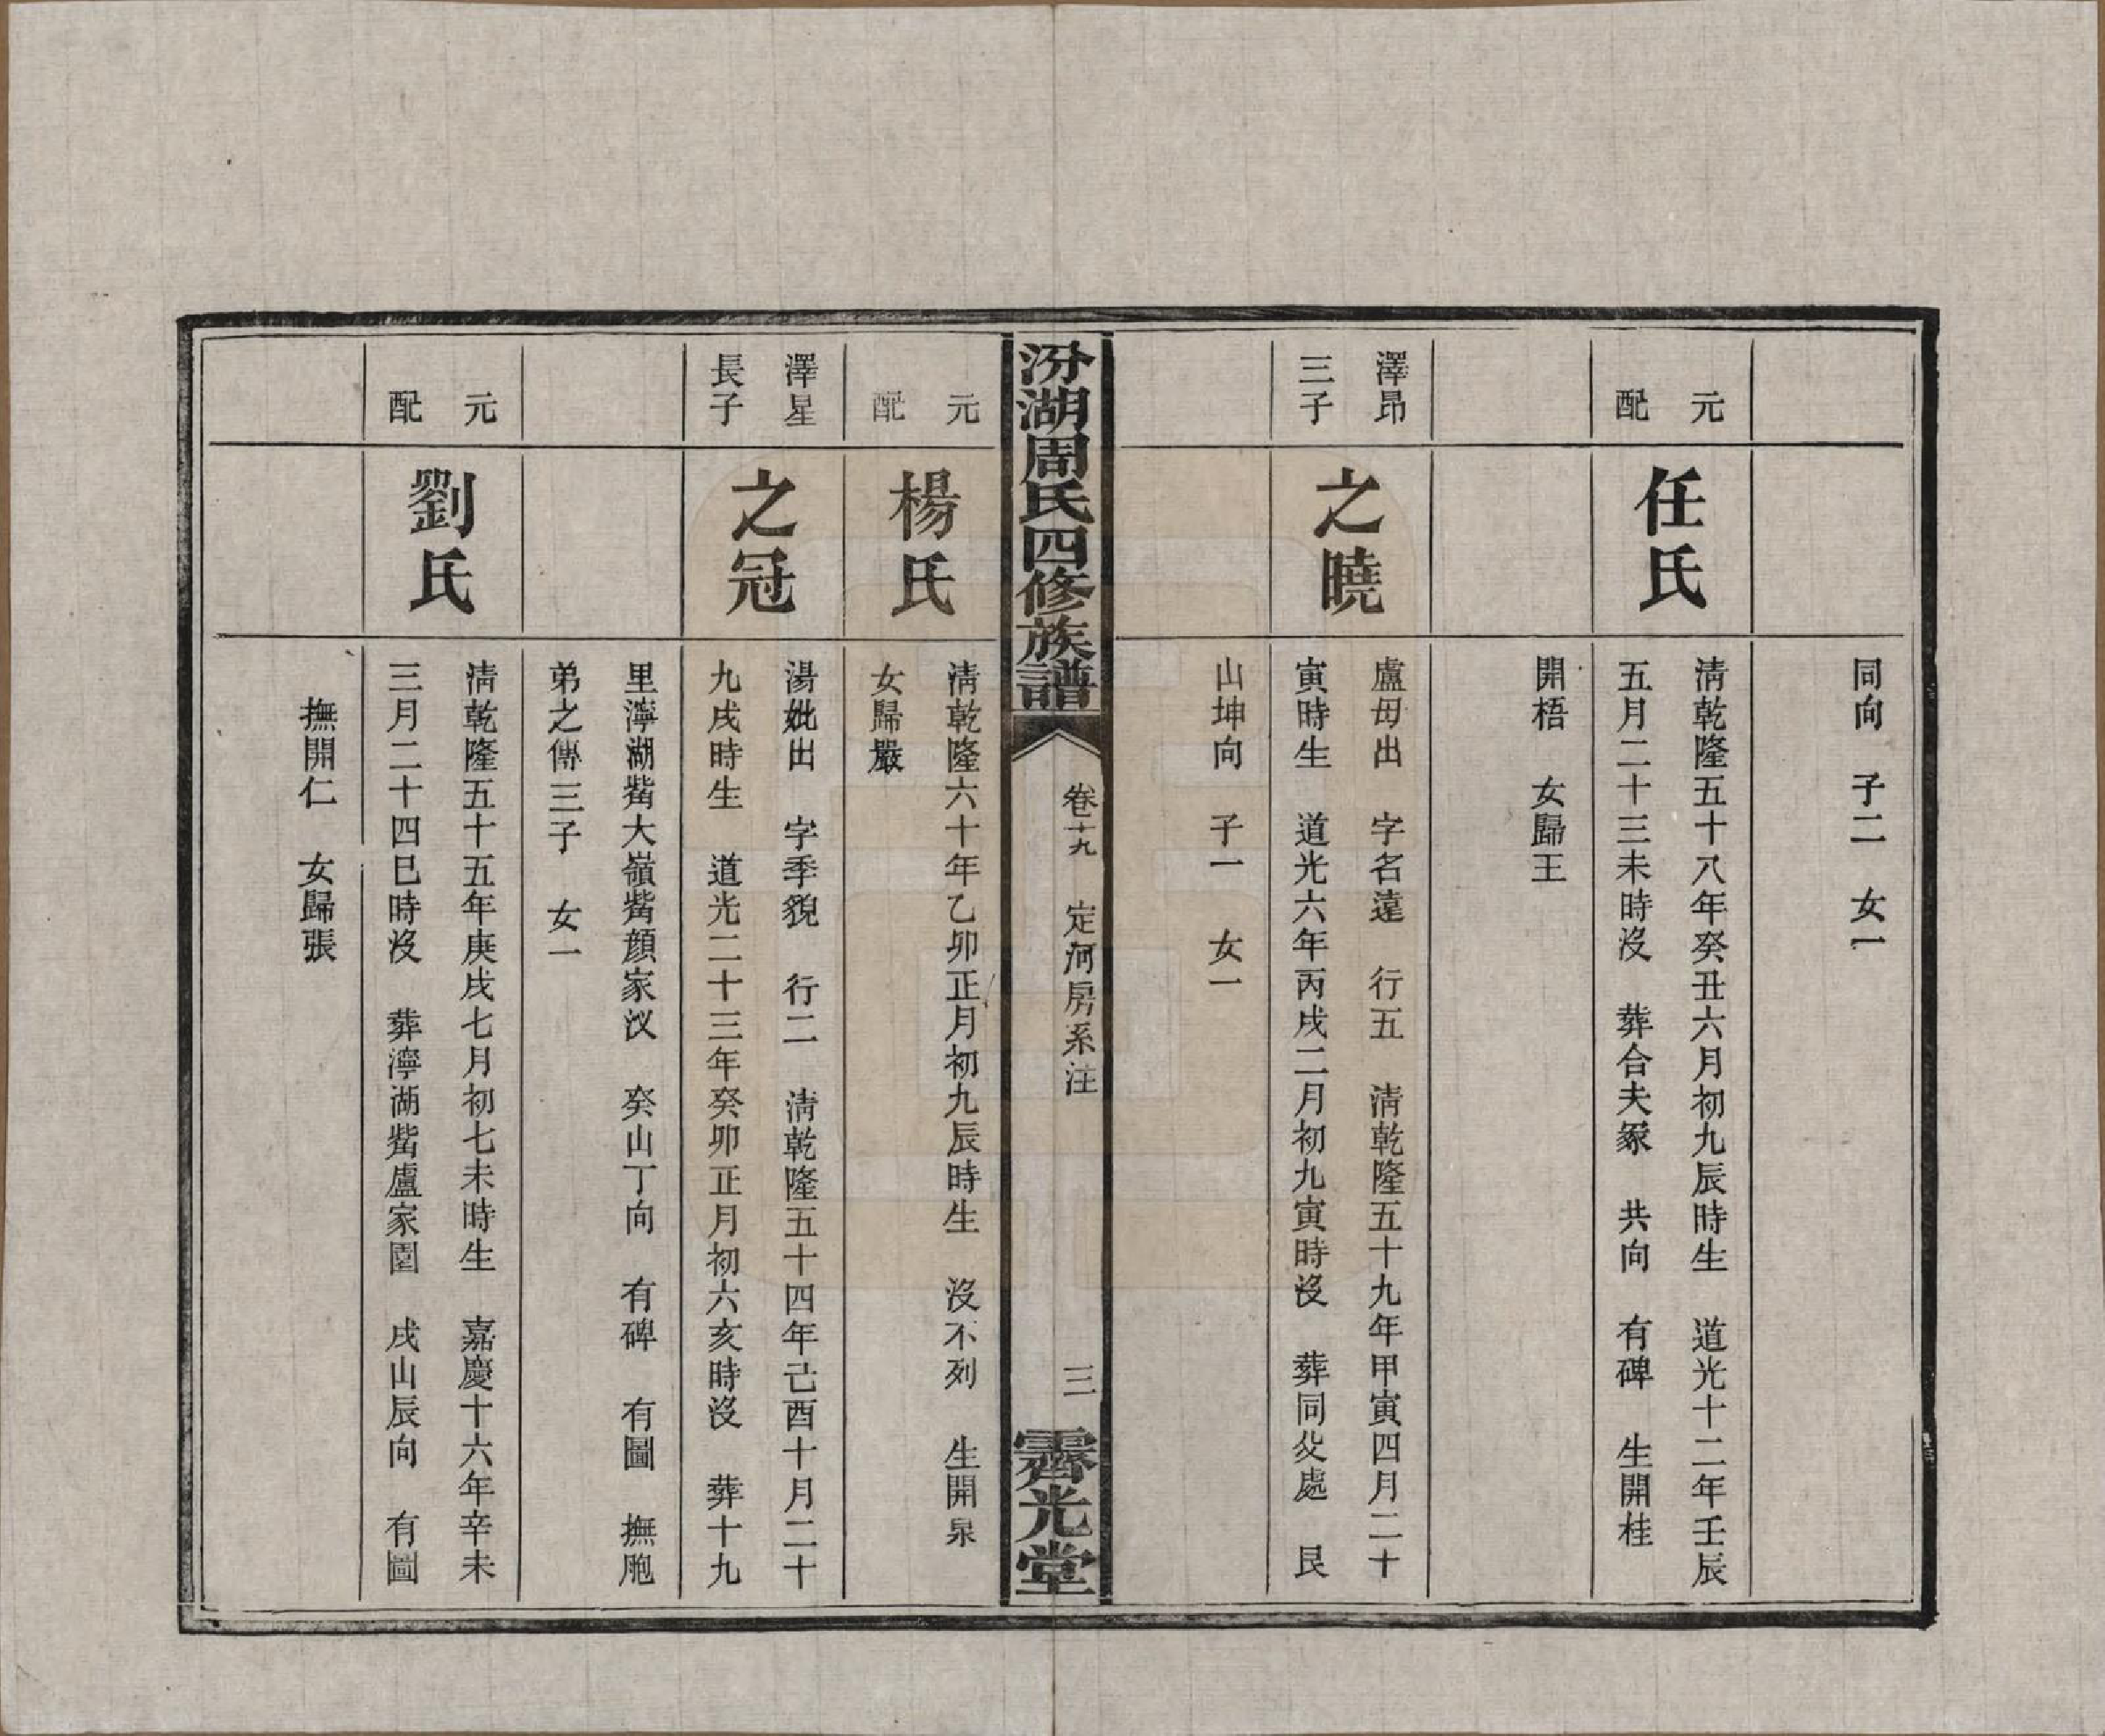 同向 子二 女一
元
配
任氏
清乾隆五十八年癸丑六月初九辰時生 道光十二年壬辰
五月二十三未時沒 葬合夫冢 共向 有碑 生開桂
開梧 女歸王
澤昂
三子
之曉
盧毋出 字名遠 行五 清乾隆五十九年甲寅四月二十
寅時生 道光六年丙戌二月初九寅時沒 葬同父處 艮
山坤向 子一 女一
汾湖周氏四修族譜
卷十九 定河房系注
三
霽光堂
元
配
楊氏
清乾隆六十年乙卯正月初九辰時生 沒不列 生開泉
女歸嚴
澤星
長子
之冠
湯妣出 字季貌 行二 清乾隆五十四年己酉十月二十
九戌時生 道光二十三年癸卯正月初六亥時沒 葬十九
里濘湖觜大嶺觜顏家汊 癸山丁向 有碑 有圖 撫胞
弟之傳三子 女一
元
配
劉氏
清乾隆五十五年庚戌七月初七未時生 嘉慶十六年辛未
三月二十四巳時沒 葬濘湖觜盧家園 戌山辰向 有圖
撫開仁 女歸張